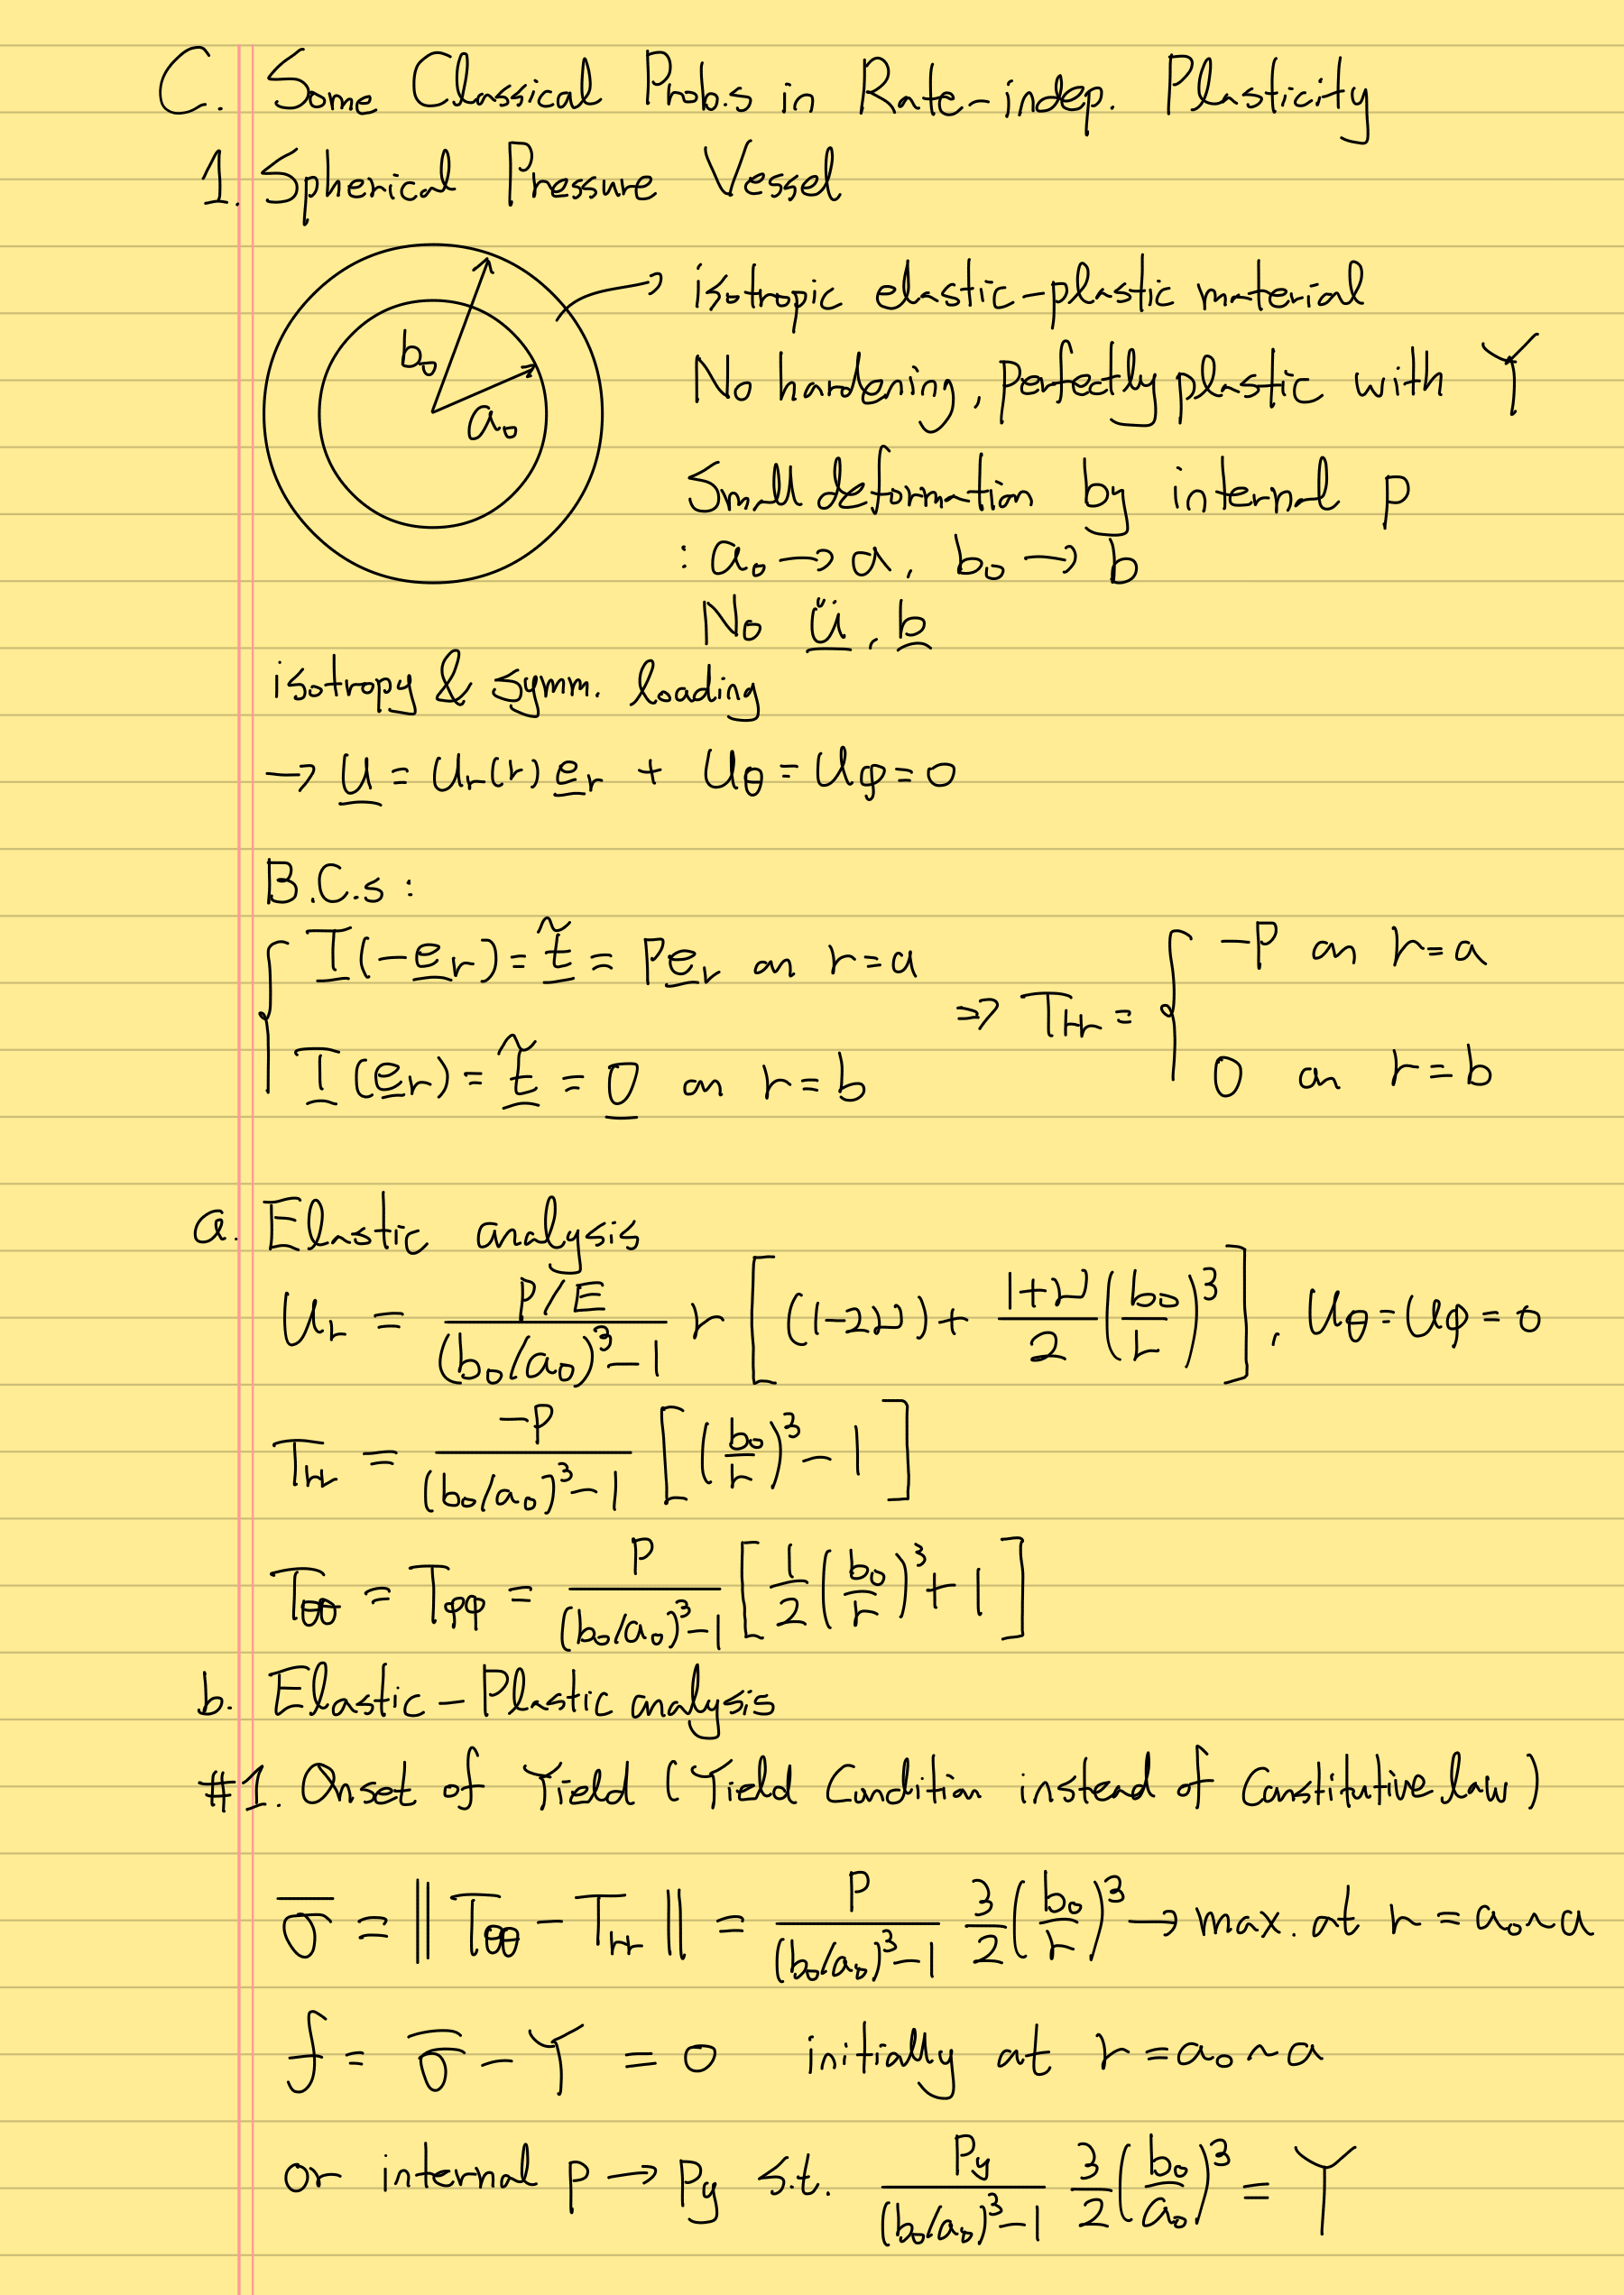 C. Some Classical Prob.s in Rate-indep. Plasticity
1. Spherical Pressure Vessel
b₀
a₀
isotropic elastic-plastic material
No hardening, perfectly plastic with Y
Small deformation by internal p
: a₀ → a, b₀ → b
No ü, b
isotropy & symm. loading
→ u = u_r(r) e_r + u_θ = u_φ = 0
B.C.s :
{ T(-e_r) = t̃ = p e_r on r=a
{ T(e_r) = t̃ = 0 on r=b
⇒ T_rr = { -P on r=a
{ 0 on r=b
a. Elastic analysis
u_r = (P/E)/((b₀/a₀)³-1) r [(1-2ν) + (1+ν)/2 (b₀/r)³], u_θ = u_φ = 0
T_rr = -P/((b₀/a₀)³-1) [(b₀/r)³ - 1]
T_θθ = T_φφ = P/((b₀/a₀)³-1) [1/2 (b₀/r)³ + 1]
b. Elastic-Plastic analysis
#1. Onset of Yield (Yield Condition instead of Constitutive law)
σ̄ = || T_θθ - T_rr || = P/((b₀/a₀)³-1) 3/2 (b₀/r)³ → max. at r = a₀ ~ a
f = σ̄ - Y = 0 initially at r = a₀ ~ a
or internal p → P_y s.t. P_y/((b₀/a₀)³-1) 3/2 (b₀/a₀)³ = Y